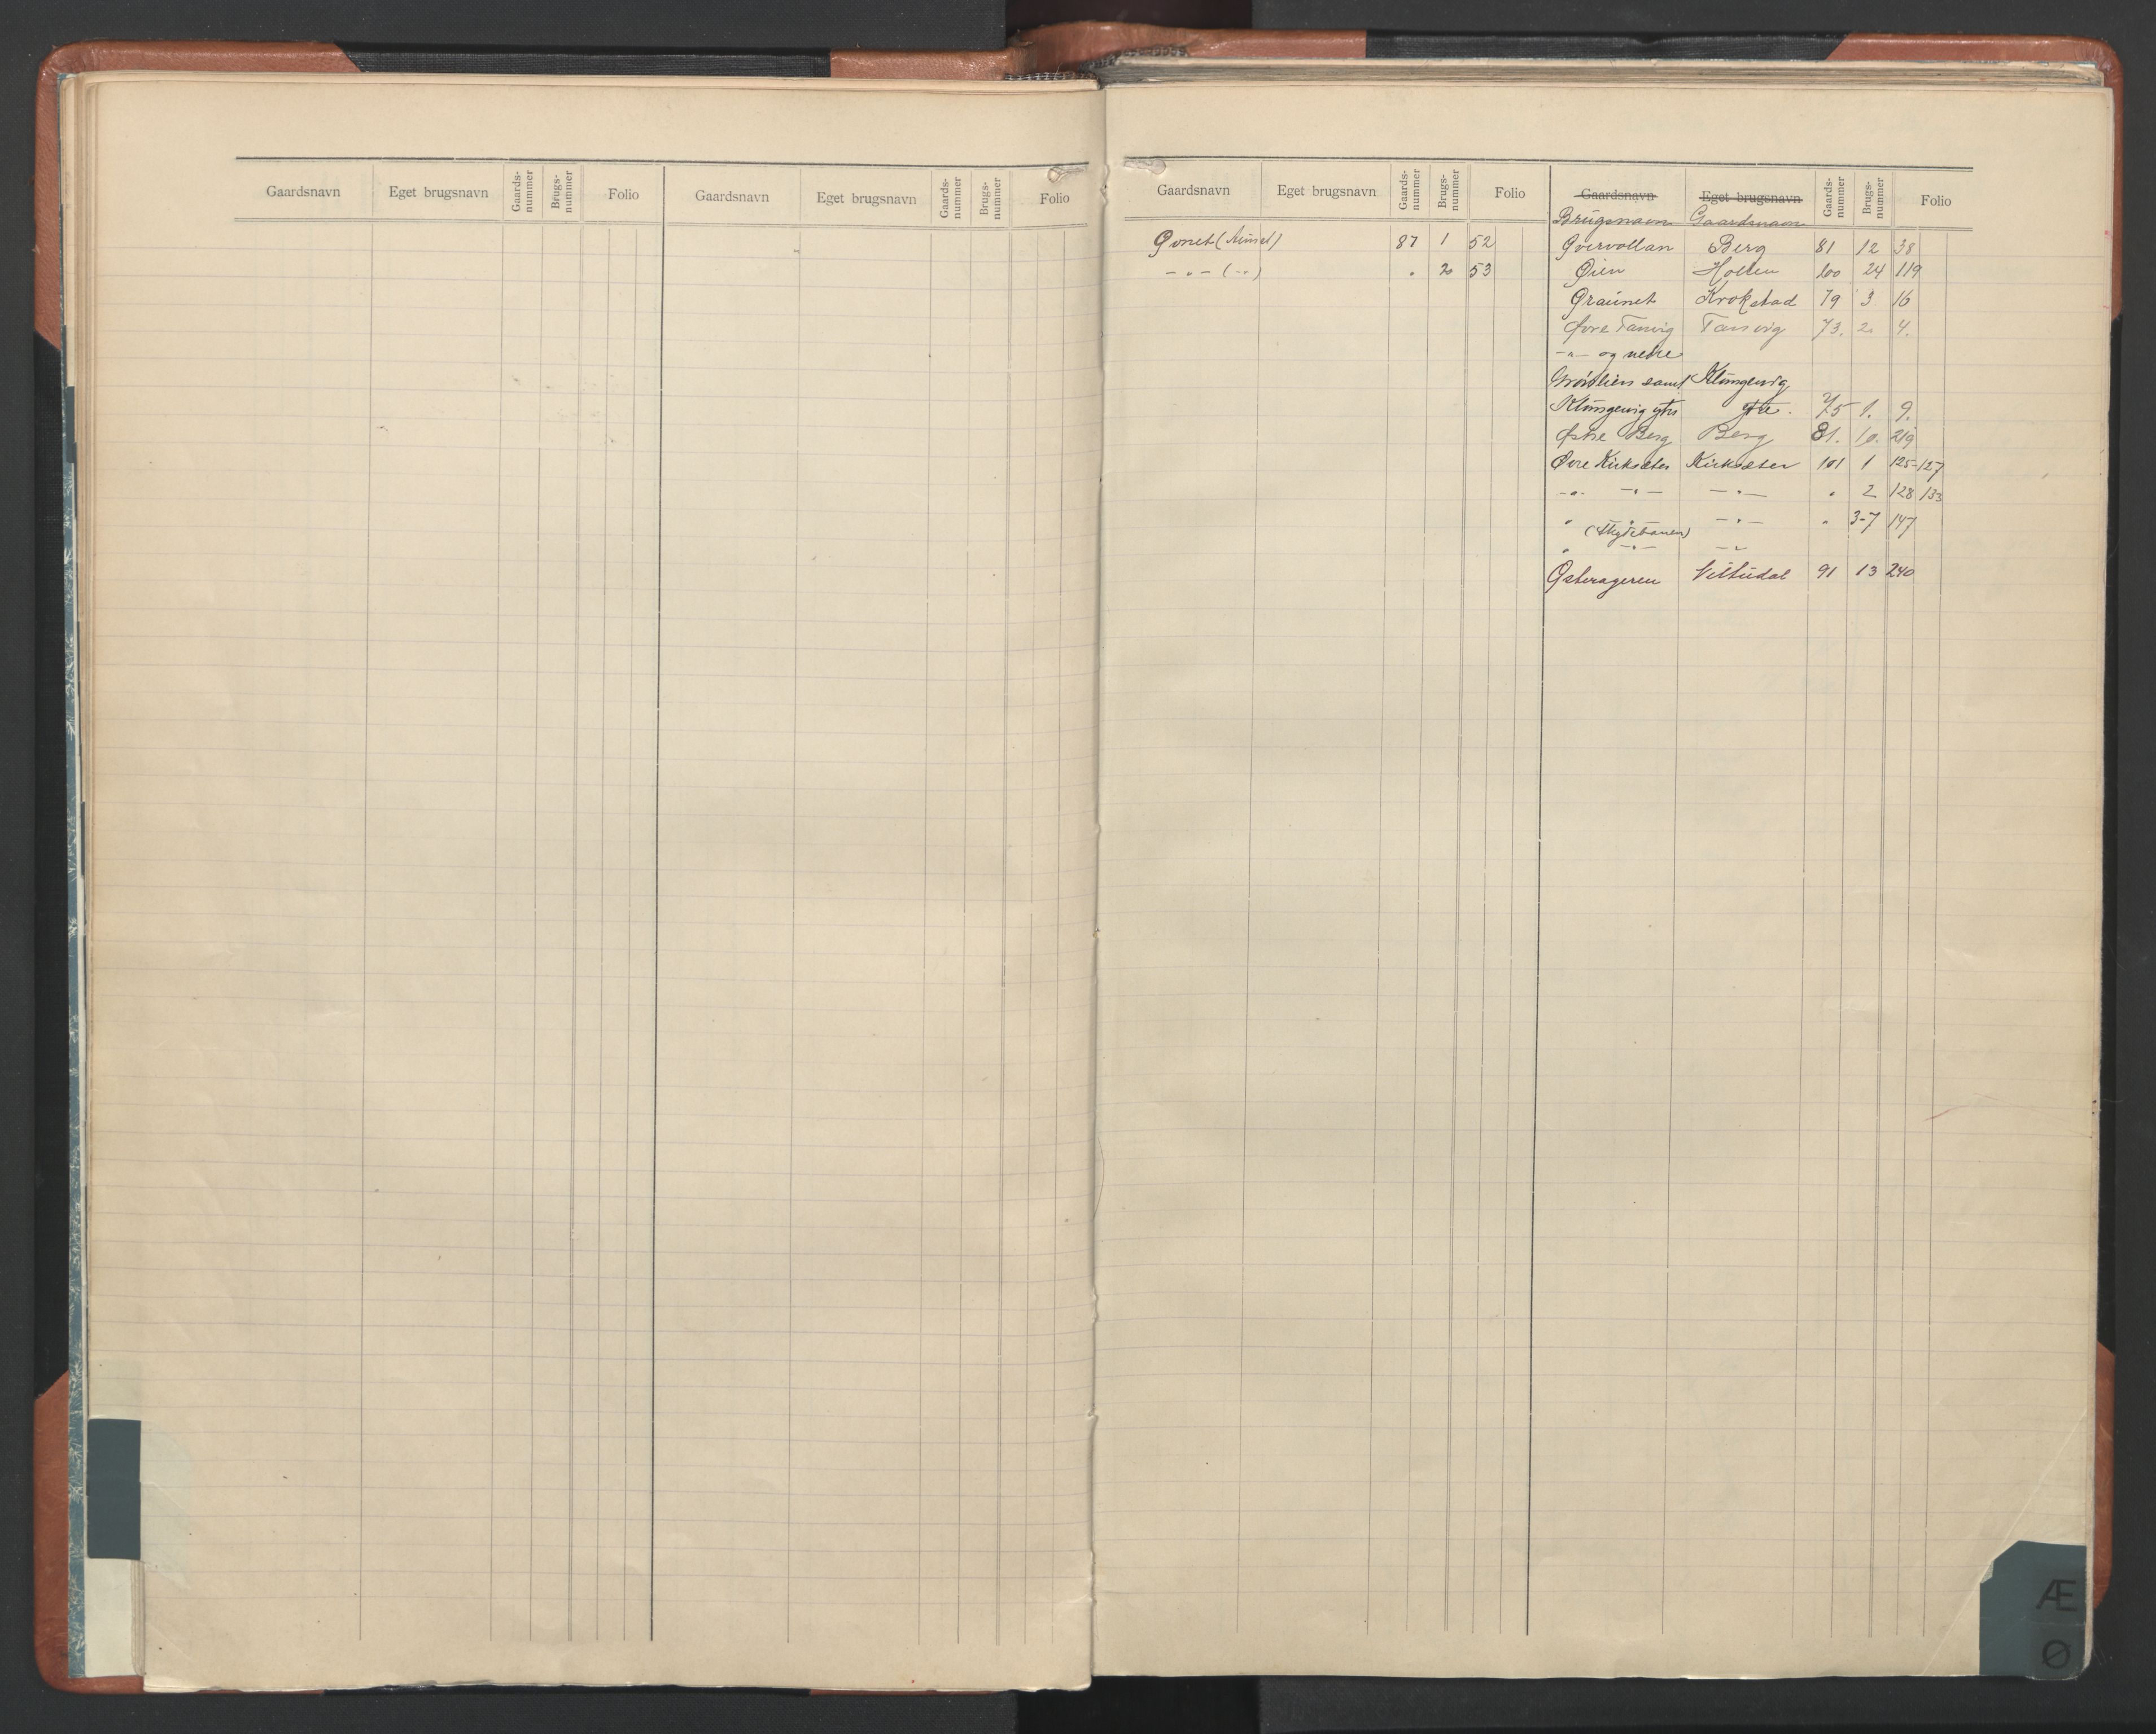 Gaardsnavn Eget brugsnavn Gaards-nummer Brugs-nummer Folio Gaardsnavn Eget brugsnavn Gaards-nummer Brugs-nummer Folio
Gaardsnavn Eget brugsnavn Gaards-nummer Brugs-nummer Folio Gaardsnavn Eget brugsnavn Gaards-nummer Brugs-nummer Folio
Brugsnavn Gaardsnavn
87 1 52
-"- (-"-) " 2 53
Øvervollan Berg 81 12 38
Øien Hollen 100 24 119
Øraunet Krokstad 79 3 16
Øvre Tanvig Tanvig 73. 2. 4.
-"- og nedre
samt Klungervig
Klungervig ytre ytre. 75 1. 9.
Østre Berg Berg 81. 10. 219
Øvre Kirksæter Kirksæter 101 1 125-127
-"- -"- -"- " 2 128 133
" " -"- " 3-7 147
(Skydebanen)
" -"- -"-
Østerageren 91 13 240
Æ
Ø